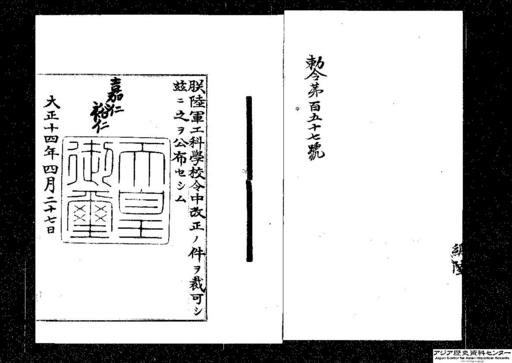 勅令第百五十七號
朕陸軍工科學校令中改正ノ件ヲ裁可シ
玆ニ之ヲ公布セシム
嘉仁
裕仁
天皇御璽
大正十四年四月二十七日
アジア歴史資料センター
Japan Center for Asian Historical Records